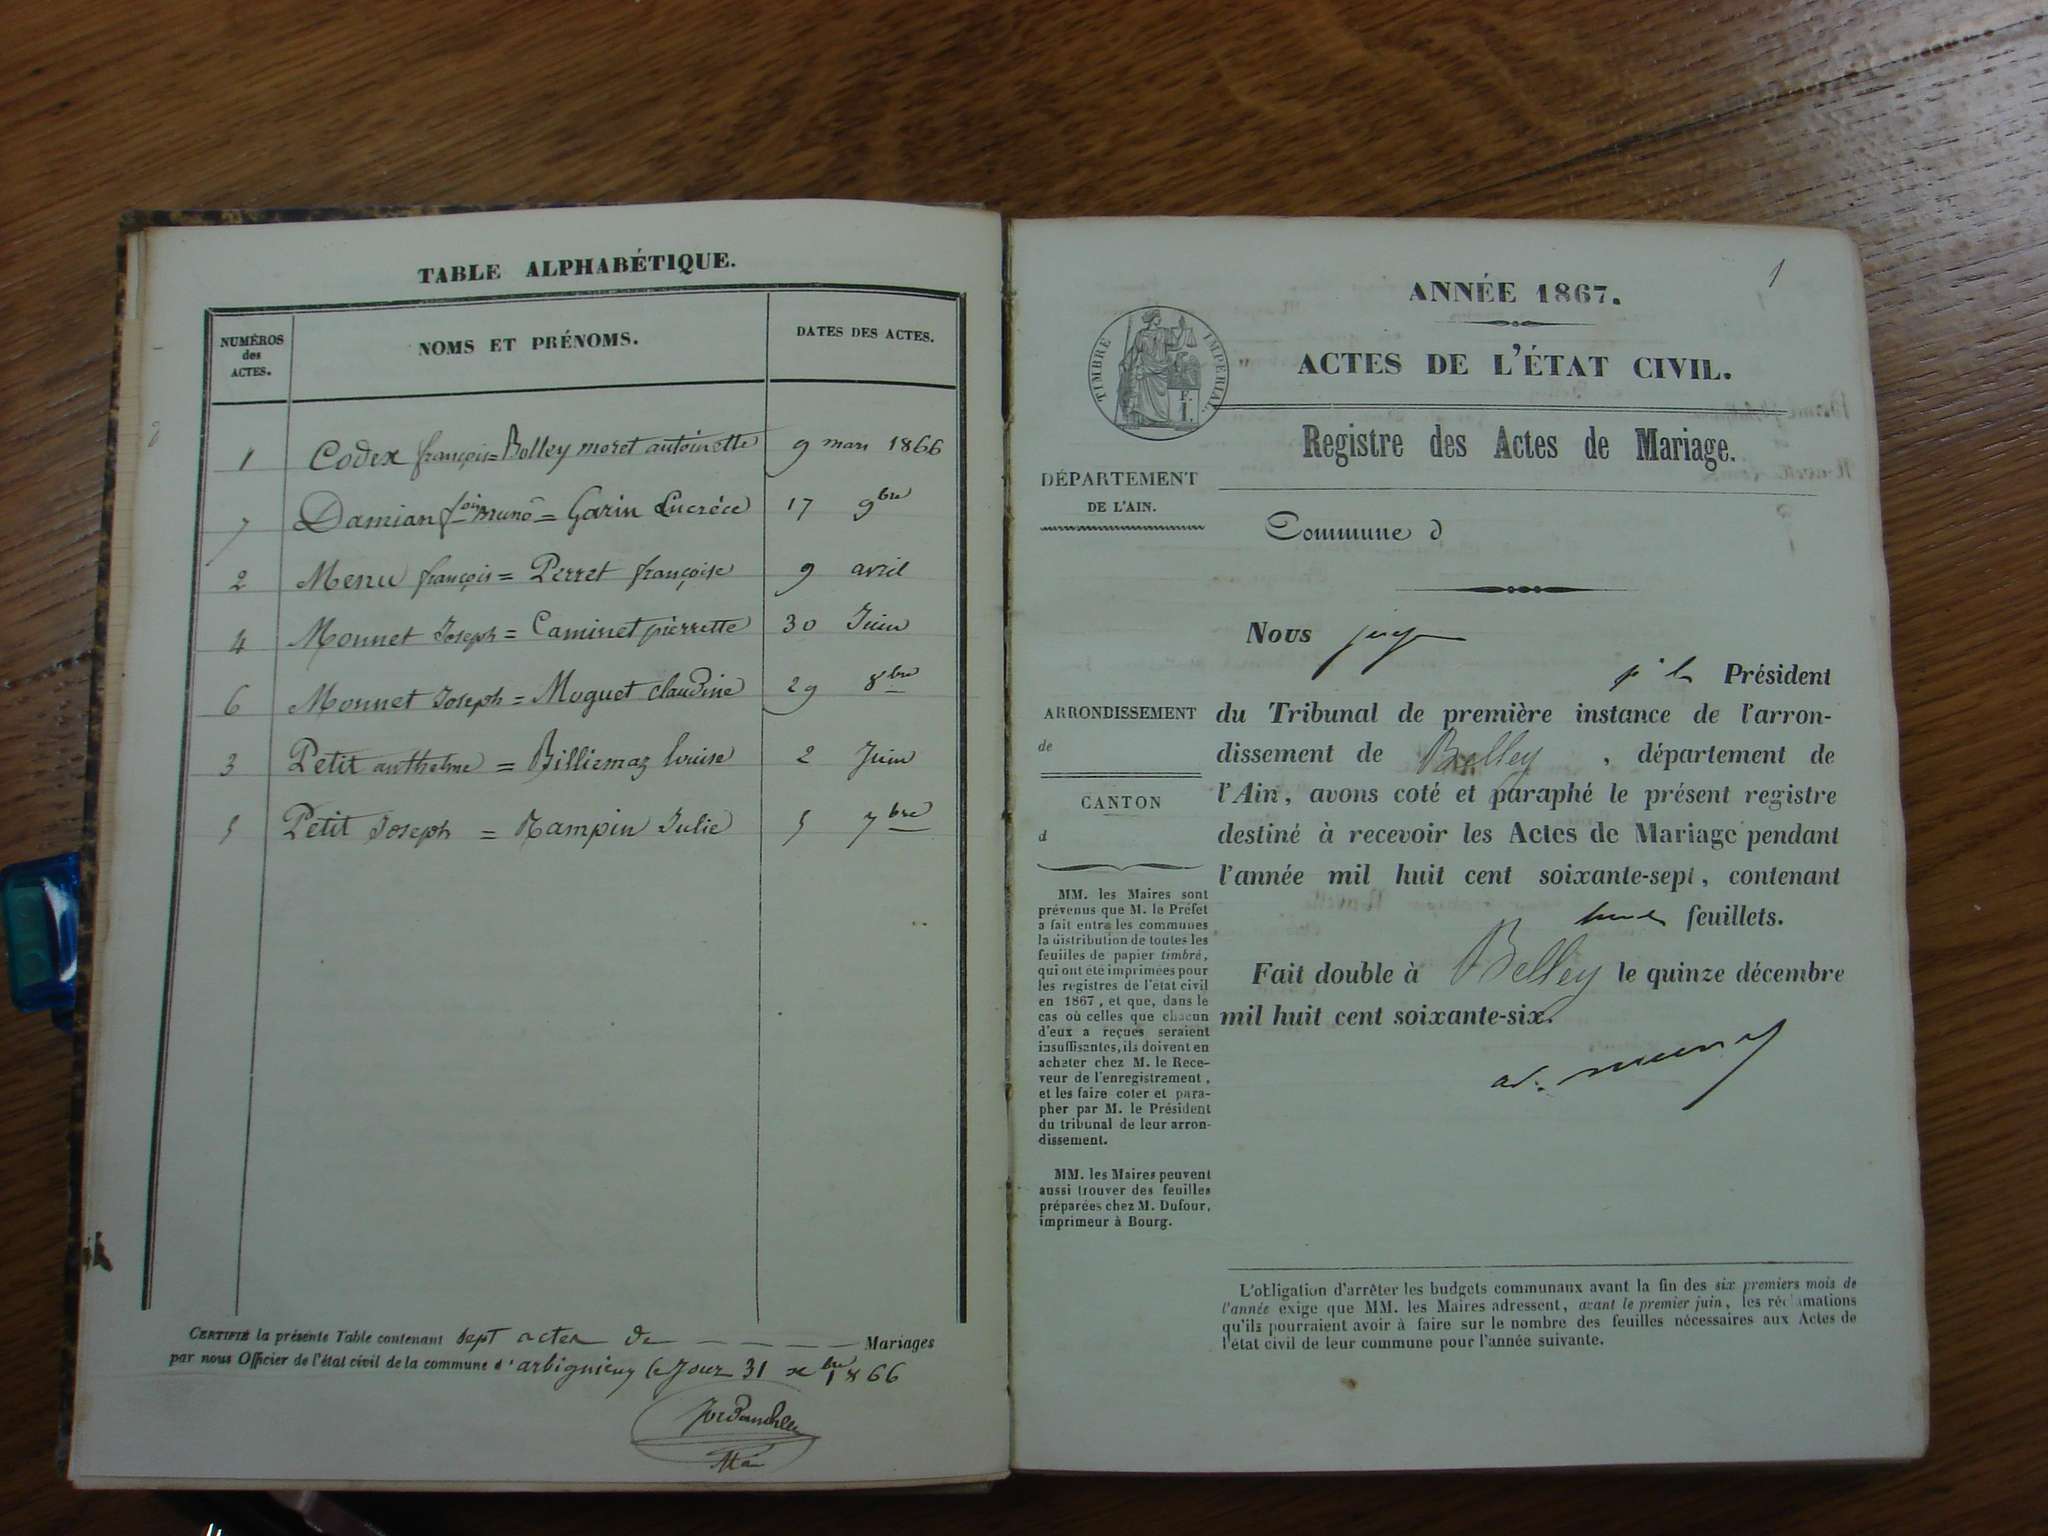 TABLE ALPHABÉTIQUE.
NUMÉROS des ACTES.
NOMS ET PRÉNOMS.
DATES DES ACTES.
1 Codex françois = Bolley moret antoinette 9 mars 1866
7 Damian = Garin Lucrèce 17 9bre
2 Menu françois = Perret françoise 9 avril
4 Monnet Joseph = Caminet pierrette 30 Juin
6 Monnet Joseph = Moguet claudine 29 8bre
3 Petit anthelme = Billiemaz louise 2 Juin
5 Petit Joseph = Rampin Julie 5 7bre
CERTIFIÉ la présente Table contenant sept actes de Mariages
par nous Officier de l'état civil de la commune d'arbignieu le Jour 31 xbre 1866
1
ANNÉE 1867.
TIMBRE IMPÉRIAL.
ACTES DE L'ÉTAT CIVIL.
Registre des Actes de Mariage.
DÉPARTEMENT
DE L'AIN.
Commune d
Nous
Président
ARRONDISSEMENT
de
CANTON
d
du Tribunal de première instance de l'arron-
dissement de Belley, département de
l'Ain, avons coté et paraphé le présent registre
destiné à recevoir les Actes de Mariage pendant
l'année mil huit cent soixante-sept, contenant
feuillets.
Fait double à Belley le quinze décembre
mil huit cent soixante-six.
MM. les Maires sont
prévenus que M. le Préfet
a fait entre les communes
la distribution de toutes les
feuilles de papier timbré,
qui ont été imprimées pour
les registres de l'état civil
en 1867, et que, dans le
cas où celles que chacun
d'eux a reçues seraient
insuffisantes, ils doivent en
acheter chez M. le Rece-
veur de l'enregistrement,
et les faire coter et para-
pher par M. le Président
du tribunal de leur arron-
dissement.
MM. les Maires peuvent
aussi trouver des feuilles
préparées chez M. Dufour,
imprimeur à Bourg.
L'obligation d'arrêter les budgets communaux avant la fin des six premiers mois de
l'année exige que MM. les Maires adressent, avant le premier juin, les réclamations
qu'ils pourraient avoir à faire sur le nombre des feuilles nécessaires aux Actes de
l'état civil de leur commune pour l'année suivante.